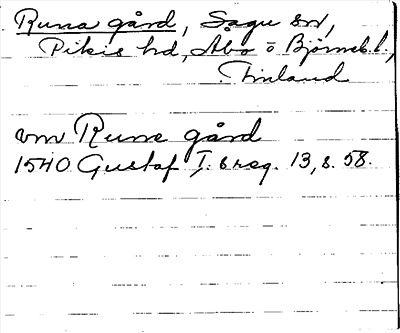 Runa gård, Sagu sn,
Pikis hd, Åbo o Björneb. l.,
Finland
vm Rune gård
1540 Gustaf I. s reg. 13, s. 58.